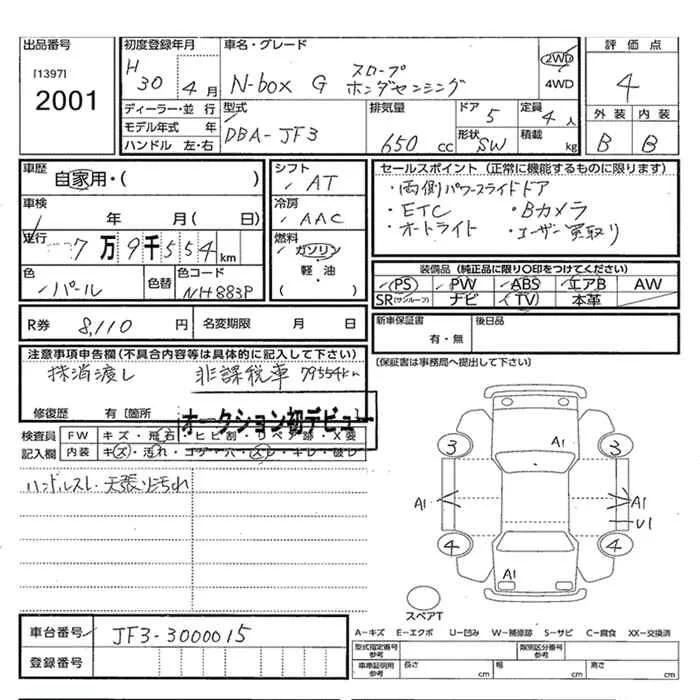 出品番号
[1397]
2001
初度登録年月
H 30 年 4 月
車名・グレード
N-box G スロープ
ホンダセンシング
2WD
4WD
評価点
4
外装 内装
B B
ディーラー・並行
モデル年式 年
ハンドル 左・右
型式
DBA-JF3
排気量
650 cc
ドア 5
形状 SW
定員 4 人
積載 kg
車歴
自家用・( )
車検
年 月( 日)
走行
7万9千554km
色
パール
色替
色コード
NH883P
シフト
AT
冷房
AAC
燃料
ガソリン
軽・油
( )
セールスポイント (正常に機能するものに限ります)
・両側パワースライドドア
・ETC ・Bカメラ
・オートライト ・ユーザー買取り
装備品 (純正品に限り〇印をつけてください)
PS PW ABS エアB AW
SR(サンルーフ) ナビ TV 本革
R券 8,110 円
名変期限 月 日
新車保証書
有・無
後日品
[保証書は事務局へ提出して下さい]
注意事項申告欄(不具合内容等は具体的に記入して下さい)
抹消渡し 非課税車 79554km
修復歴 有[箇所
オークション初デビュー
検査員
記入欄
FW キズ・飛石・ヒビ割・リペア跡・X要
内装 キズ・汚れ・コゲ・穴・スレ・キレ・破レ
ハンドルスレ 天張り汚れ
A1
3
3
A1
A1
U1
4
4
A1
スペアT
車台番号
JF3-3000015
登録番号
A-キズ E-エクボ U-凹み W-補修跡 S-サビ C-腐食 XX-交換済
型式指定番号
参考
類別区分番号
参考
車庫証明用
参考
長さ cm
幅 cm
高さ cm